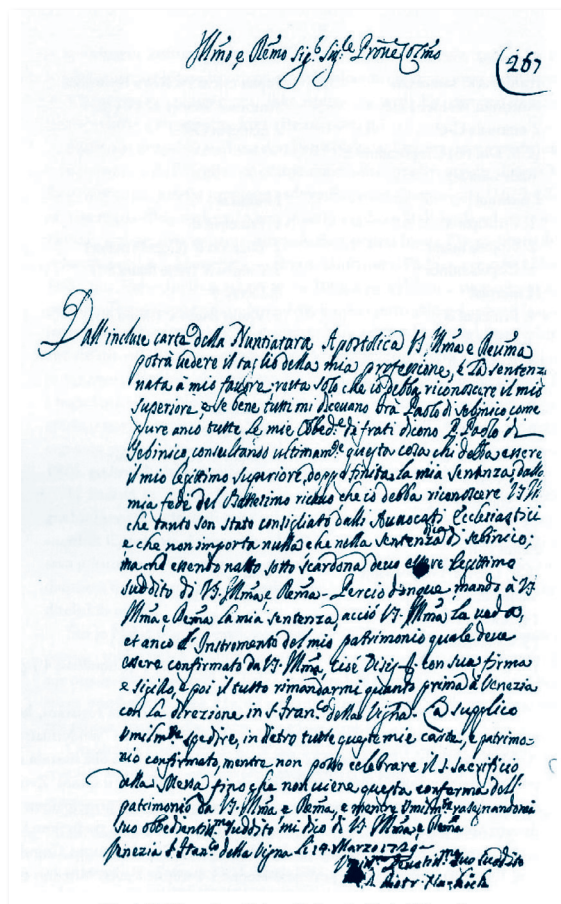 Illmo e Remo Sig.r Sig.le Prone Colmo
(267
Dall'incluse carte della Nuntiatura Apostolica V.S. Illma e Reuma
potrà uedere il taglio della mia professione, è la sentenza
nata à mio fauore, resta solo che io debba riconoscere il mio
superiore, e se bene tutti mi diceuano fra Paolo di sebinico come
pure anco tutte le mie Obbed.e di frati dicono P. Paolo di
Sebinico, consultando ultimam.te questa cosa chi debba essere
il mio legittimo superiore, doppo finita la mia sentenza, dalla
mia fede del Battesimo che io debba riconoscere V.S. Ill
che tanto son stato consigliato dalli Auuocati Ecclesiastici
e che non importa nulla che nella sentenza di sebinico;
ma che essendo natto sotto scardona deuo essere legittimo
suddito di V.S. Illma e Rema. Perciò dunque mando à V.S.
Illma e Rema la mia sentenza acciò V.S. Illma la ueda,
et anco l'Instromento del mio patrimonio quale deue
essere confirmato da V.S. Illma, con sua firma
e sigillo, e poi il tutto rimandarmi quanto prima à Venezia
con la direzione in S. Fran.co della Vigna. La supplico
umilm.te spedire, in dietro tutte queste mie carte, e patrimo-
nio confirmato, mentre non posso celebrare il S. sacrificio
della Messa fino che non uiene questa conferma dell
patrimonio da V.S. Illma e Rema, e mentre umilm.te rasegnandomi
suo obbedientis.mo suddito mi dico di V.S. Illma e Rema
Venezia S. Fran.co della Vigna li 14 Marzo 1729
suo suddito